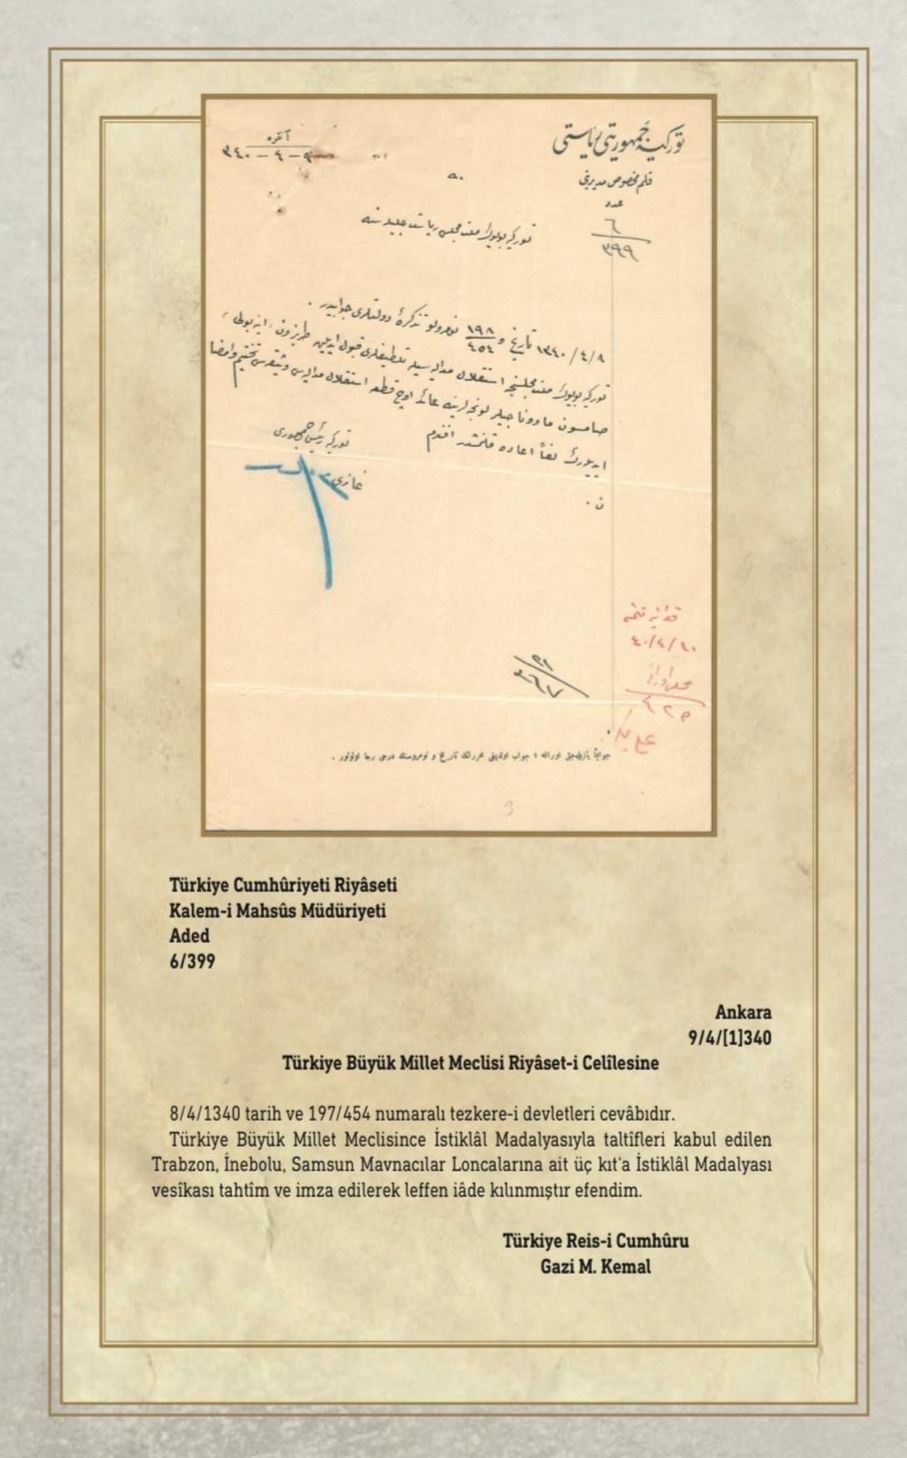 توركيه جمهوريتى رياستى
قلم مخصوص مديريتى
عدد
٦
٣٩٩
آنقره
٣٤٠-٤-٩
توركيه بويوك ملت مجلسى رياست جليله سنه
١٣٤٠/٤/٨ تاريخ و ١٩٨/٤٥٤ نومرولو تذكرۀ دولتلرى جوابيدر .
توركيه بويوك ملت مجلسنجه استقلال مداليه سيله تلطيفلرى قبول ايديلن طرابزون ، اينه بولى ،
صامسون ماونه جيلر لونجه لرينه عائد اوچ قطعه استقلال مداليه سى وثيقه سى تختيم و امضا
ايديلرك لفاً اعاده قلنمشدر افندم
توركيه رئيس جمهورى
غازى م. كمال
ن .
٤٠/٤/١٠
٤٢٥
3
Türkiye Cumhûriyeti Riyâseti
Kalem-i Mahsûs Müdüriyeti
Aded
6/399
Ankara
9/4/[1]340
Türkiye Büyük Millet Meclisi Riyâset-i Celîlesine
8/4/1340 tarih ve 197/454 numaralı tezkere-i devletleri cevâbıdır.
Türkiye Büyük Millet Meclisince İstiklâl Madalyasıyla taltîfleri kabul edilen
Trabzon, İnebolu, Samsun Mavnacılar Loncalarına ait üç kıt'a İstiklâl Madalyası
vesîkası tahtîm ve imza edilerek leffen iâde kılınmıştır efendim.
Türkiye Reis-i Cumhûru
Gazi M. Kemal